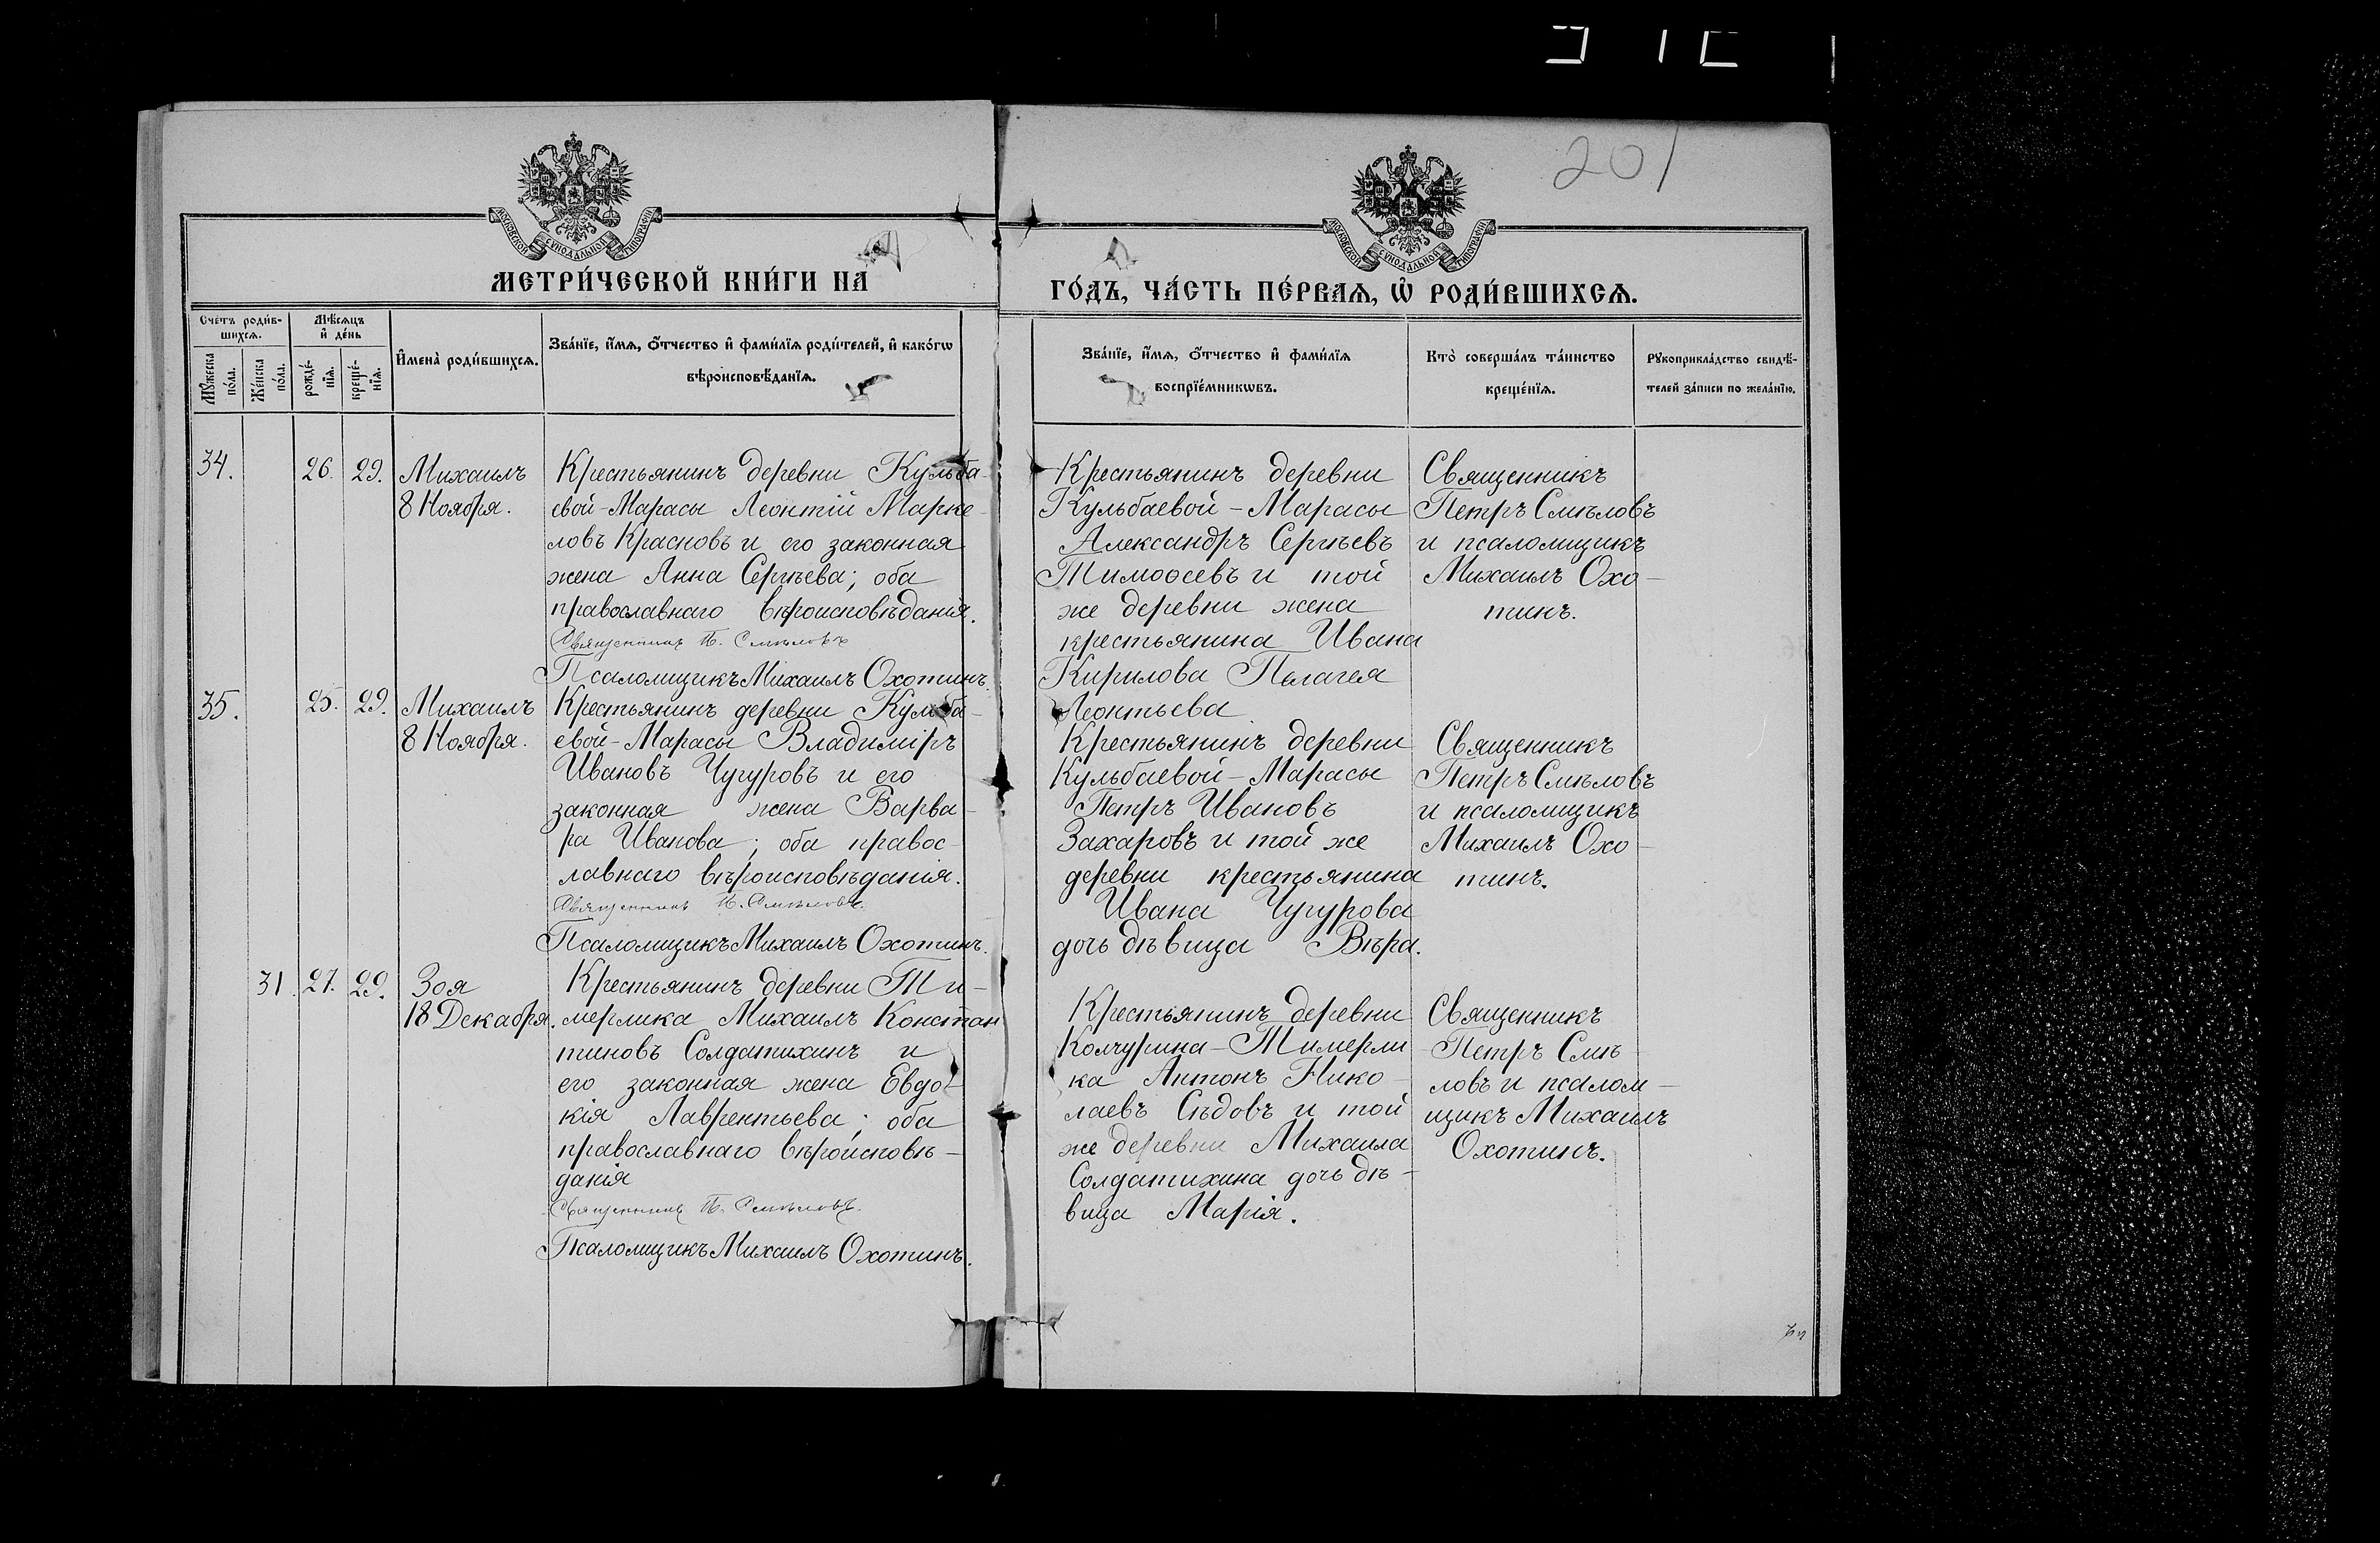 201
МОСКОВСКОЙ СѴНОДАЛЬНОЙ ТИПОГРАФІИ
МОСКОВСКОЙ СѴНОДАЛЬНОЙ ТИПОГРАФІИ
МЕТРИ́ЧЕСКОЙ КНИ́ГИ НА
ГО́ДЪ, ЧА́СТЬ ПЕ́РВАѦ, Ѡ҆ РОДИ́ВШИХСѦ.
Сче́тъ роди́в-
шихсѧ.
Мѣ́сѧцъ
и҆ де́нь
Мꙋ́жеска
по́ла.
Же́нска
по́ла.
рожде́-
нїѧ.
креще́-
нїѧ.
И҆мена̀ роди́вшихсѧ.
Зва́нїе, и҆́мѧ, ѻ҆́тчество и҆ фами́лїѧ роди́телей, и҆ како́гѡ
вѣроисповѣ́данїѧ.
Зва́нїе, и҆́мѧ, ѻ҆́тчество и҆ фами́лїѧ
воспрїе́мникѡвъ.
Кто̀ соверша́лъ та́инство
креще́нїѧ.
Рꙋкоприкла́дство свидѣ́-
телей за́писи по жела́нїю.
34.
26.
29.
Михаилъ
8 Ноября.
Крестьянинъ деревни Кульба-
евой-Марасы Леонтій Марке-
ловъ Красновъ и его законная
жена Анна Сергѣева; оба
православнаго вѣроисповѣданія.
Священникъ П. Смѣловъ
Псаломщикъ Михаилъ Охотинъ.
Крестьянинъ деревни
Кульбаевой-Марасы
Александръ Сергѣевъ
Тимоѳеевъ и той
же деревни жена
крестьянина Ивана
Кирилова Пелагея
Леонтьева
Священникъ
Петръ Смѣловъ
и псаломщикъ
Михаилъ Охо-
тинъ.
35.
25.
29.
Михаилъ
8 Ноября.
Крестьянинъ деревни Кульба-
евой-Марасы Владиміръ
Ивановъ Чугуровъ и его
законная жена Варва-
ра Иванова; оба правос-
лавнаго вѣроисповѣданія.
Священникъ П. Смѣловъ.
Псаломщикъ Михаилъ Охотинъ.
Крестьянинъ деревни
Кульбаевой-Марасы
Петръ Ивановъ
Захаровъ и той же
деревни крестьянина
Ивана Чугурова
дочь дѣвица Вѣра.
Священникъ
Петръ Смѣловъ
и псаломщикъ
Михаилъ Охо-
тинъ.
31.
27.
29.
Зоя
18 Декабря.
Крестьянинъ деревни Ти-
мерлика Михаилъ Констан
тиновъ Солдатихинъ и
его законная жена Евдо-
кія Лаврентьева; оба
православнаго вѣроисповѣ-
данія
Священникъ П. Смѣловъ.
Псаломщикъ Михаилъ Охотинъ.
Крестьянинъ деревни
Колчурина-Тимерли
ка Антонъ Нико-
лаевъ Сѣдовъ и той
же деревни Михаила
Солдатихина дочь дѣ-
вица Марія.
Священникъ
Петръ Смѣ
ловъ и псалом-
щикъ Михаилъ
Охотинъ.